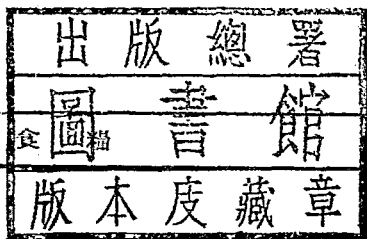 出版總署
食
圖書館
版本庋藏章